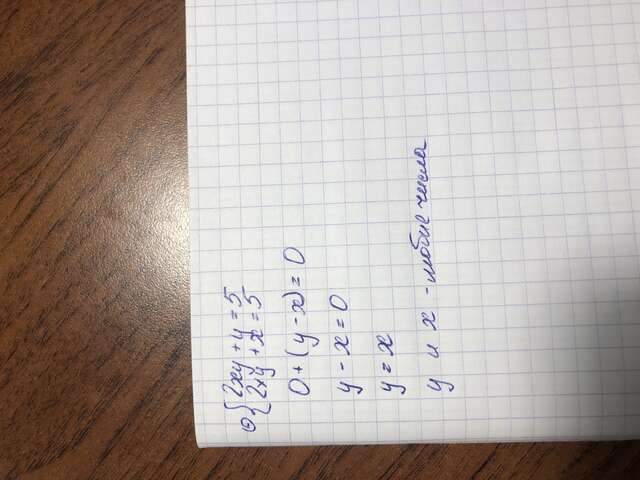 ⊖ { 2xy + y = 5
2xy + x = 5
0 + (y - x) = 0
y - x = 0
y = x
y и x - любые числа